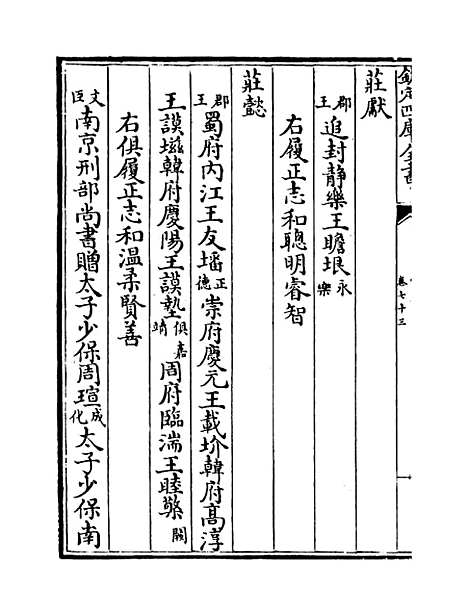 欽定四庫全書
卷七十三
莊獻
郡王追封靜樂王瞻垠永樂
右履正志和聰明睿智
莊懿
郡王蜀府內江王友墦正德崇府慶元王載圿韓府高淳
王謨𡑞韓府慶陽王謨墊俱嘉靖周府臨湍王睦㰂闕
右俱履正志和溫柔賢善
文臣南京刑部尚書贈太子少保周瑄成化太子少保南